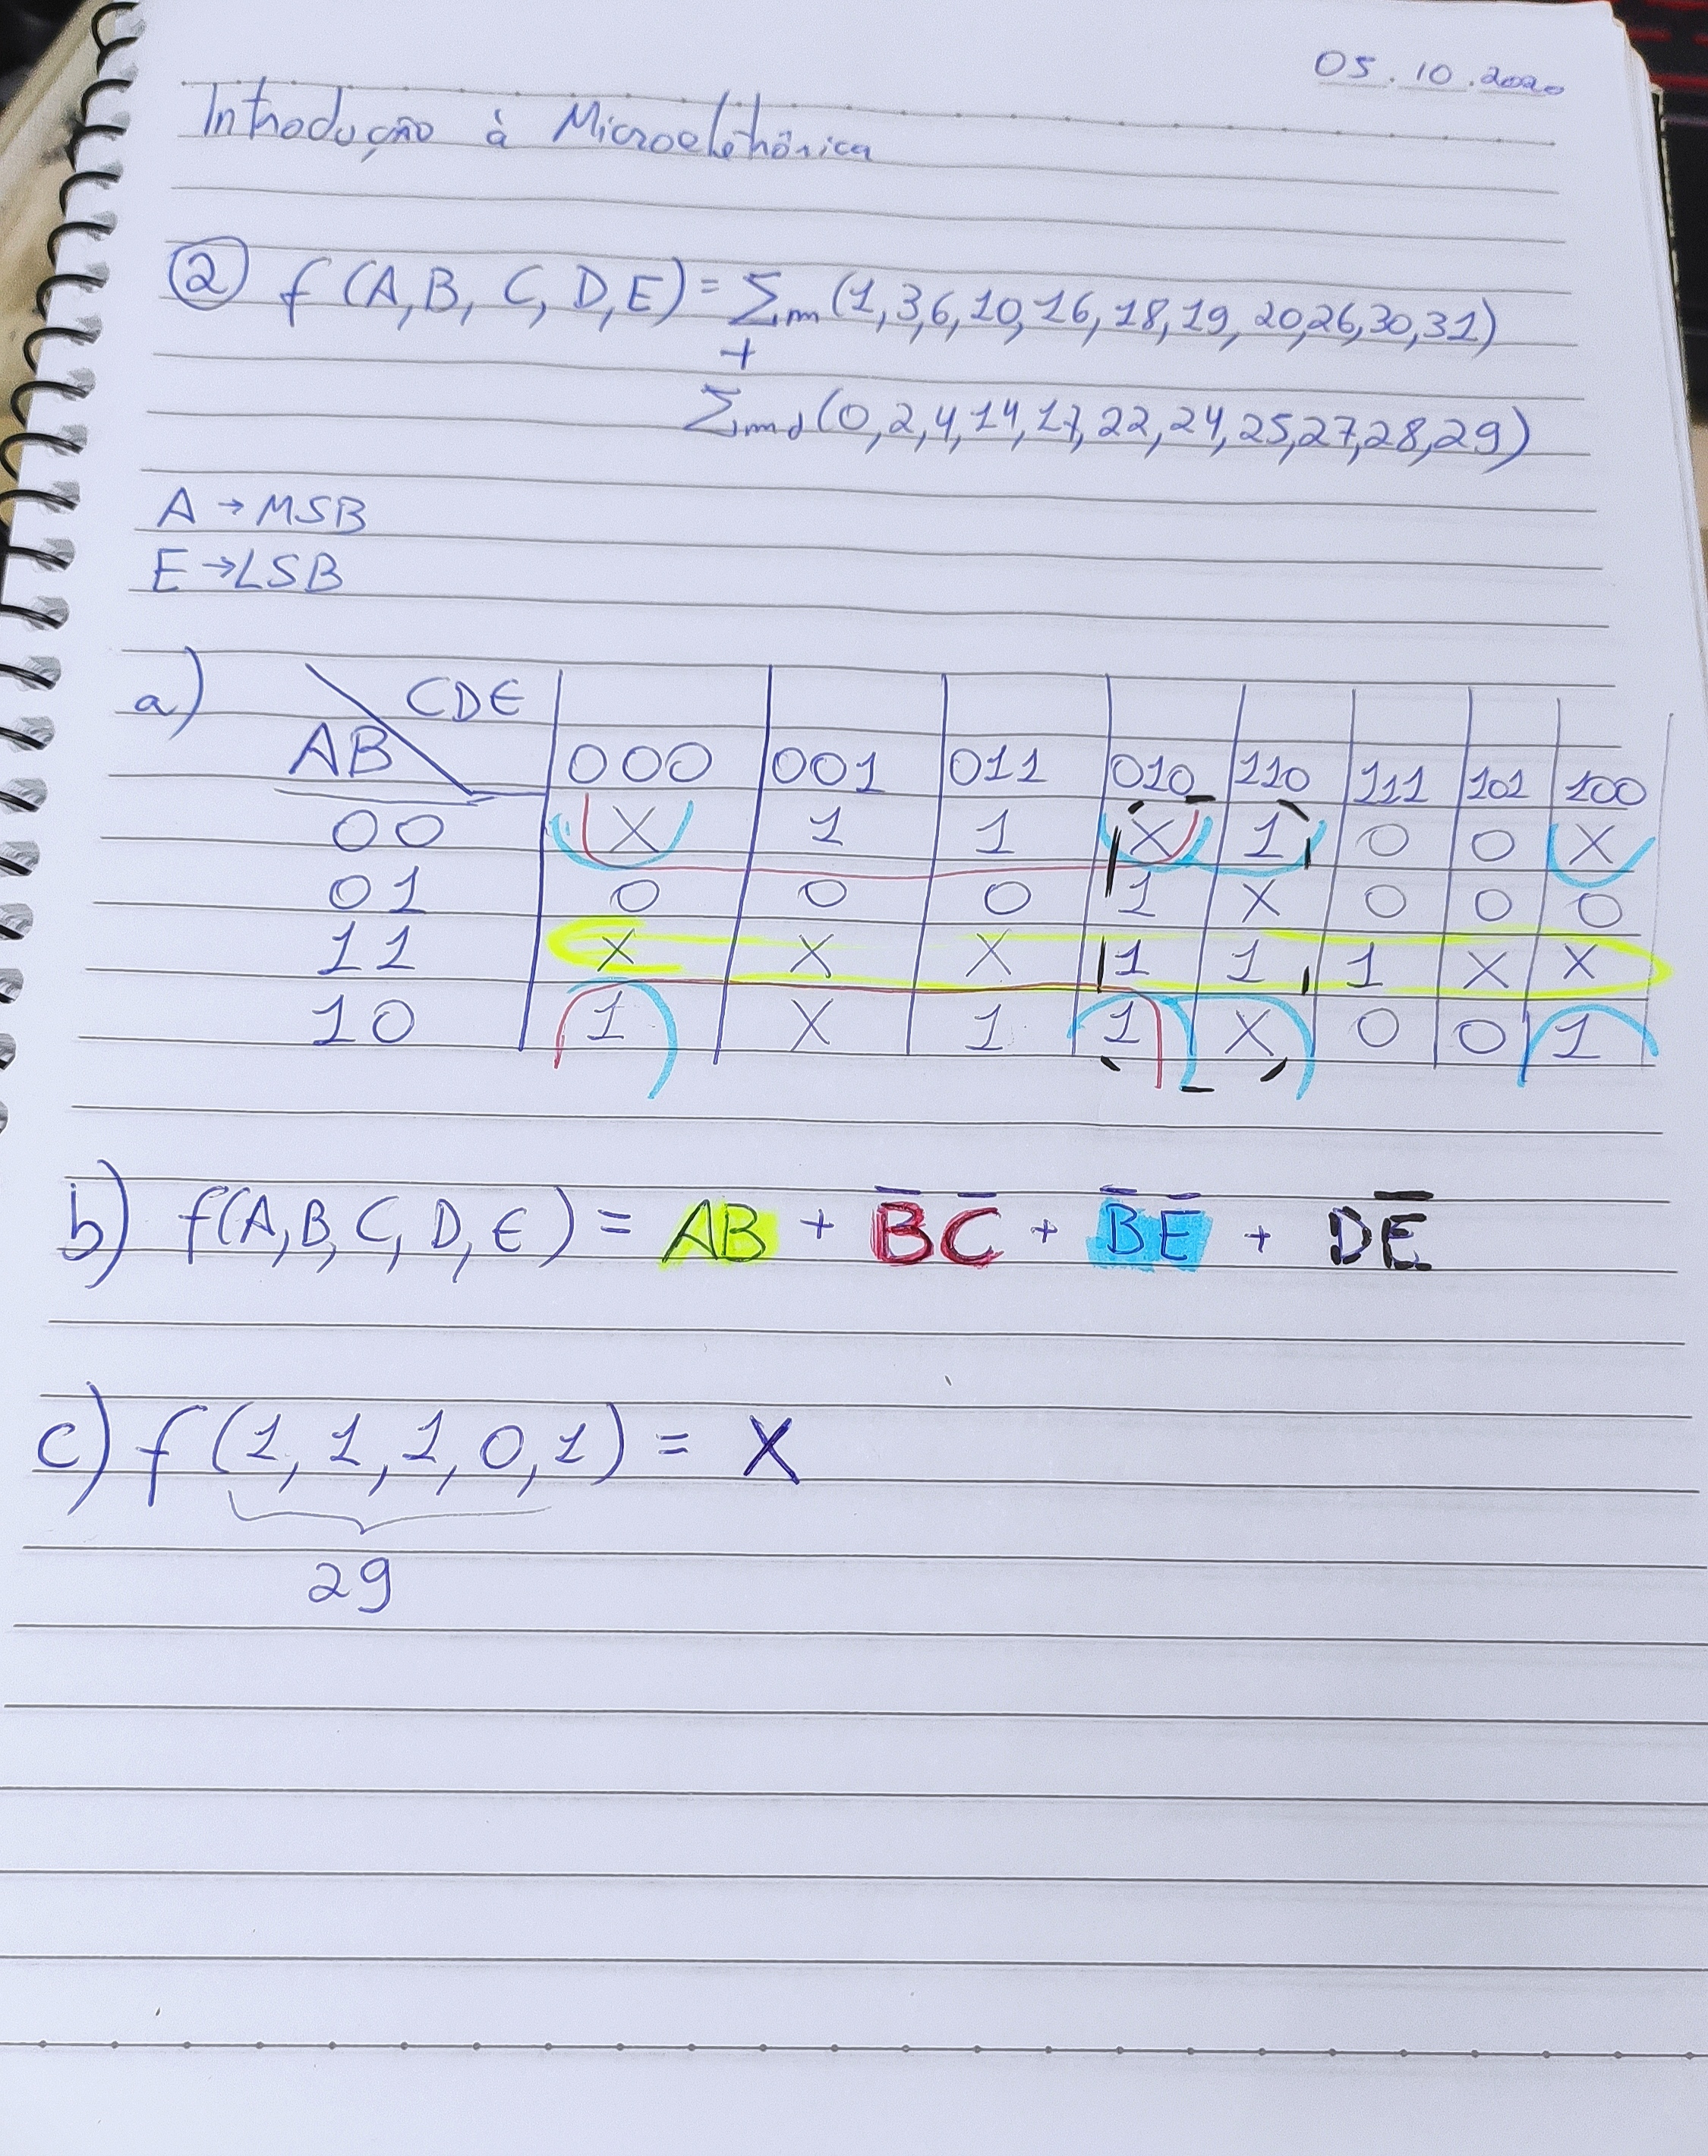 05.10.2020
Introdução à Microeletrônica
② f(A,B,C,D,E) = Σm(1,3,6,10,16,18,19,20,26,30,31)
+
Σmd(0,2,4,14,17,22,24,25,27,28,29)
A → MSB
E → LSB
a) CDE
AB 000 001 011 010 110 111 101 100
00 X 1 1 X 1 0 0 X
01 0 0 0 1 X 0 0 0
11 X X X 1 1 1 X X
10 1 X 1 1 X 0 0 1
b) f(A,B,C,D,E) = AB + B̅C̅ + B̅E̅ + DE̅
c) f(1,1,1,0,1) = X
29